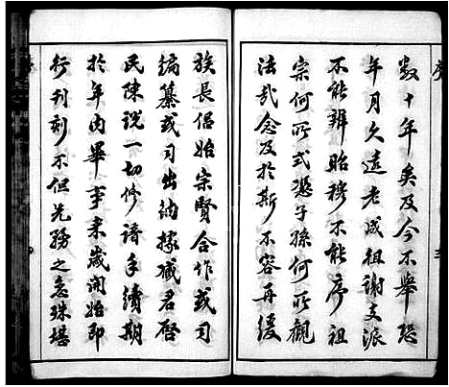 序
数十年矣及今不舉恐
年月久遠老成徂謝支派
不能辨昭穆不能序祖
宗何所式憑子孫何所觀
法哉念及於斯不容再緩
族長侶始宗賢合作或司
編纂或司出納據臧君啓
民陳說一切修譜手續期
於年內畢事来歲開始即
行刊刻不但先務之急殊堪